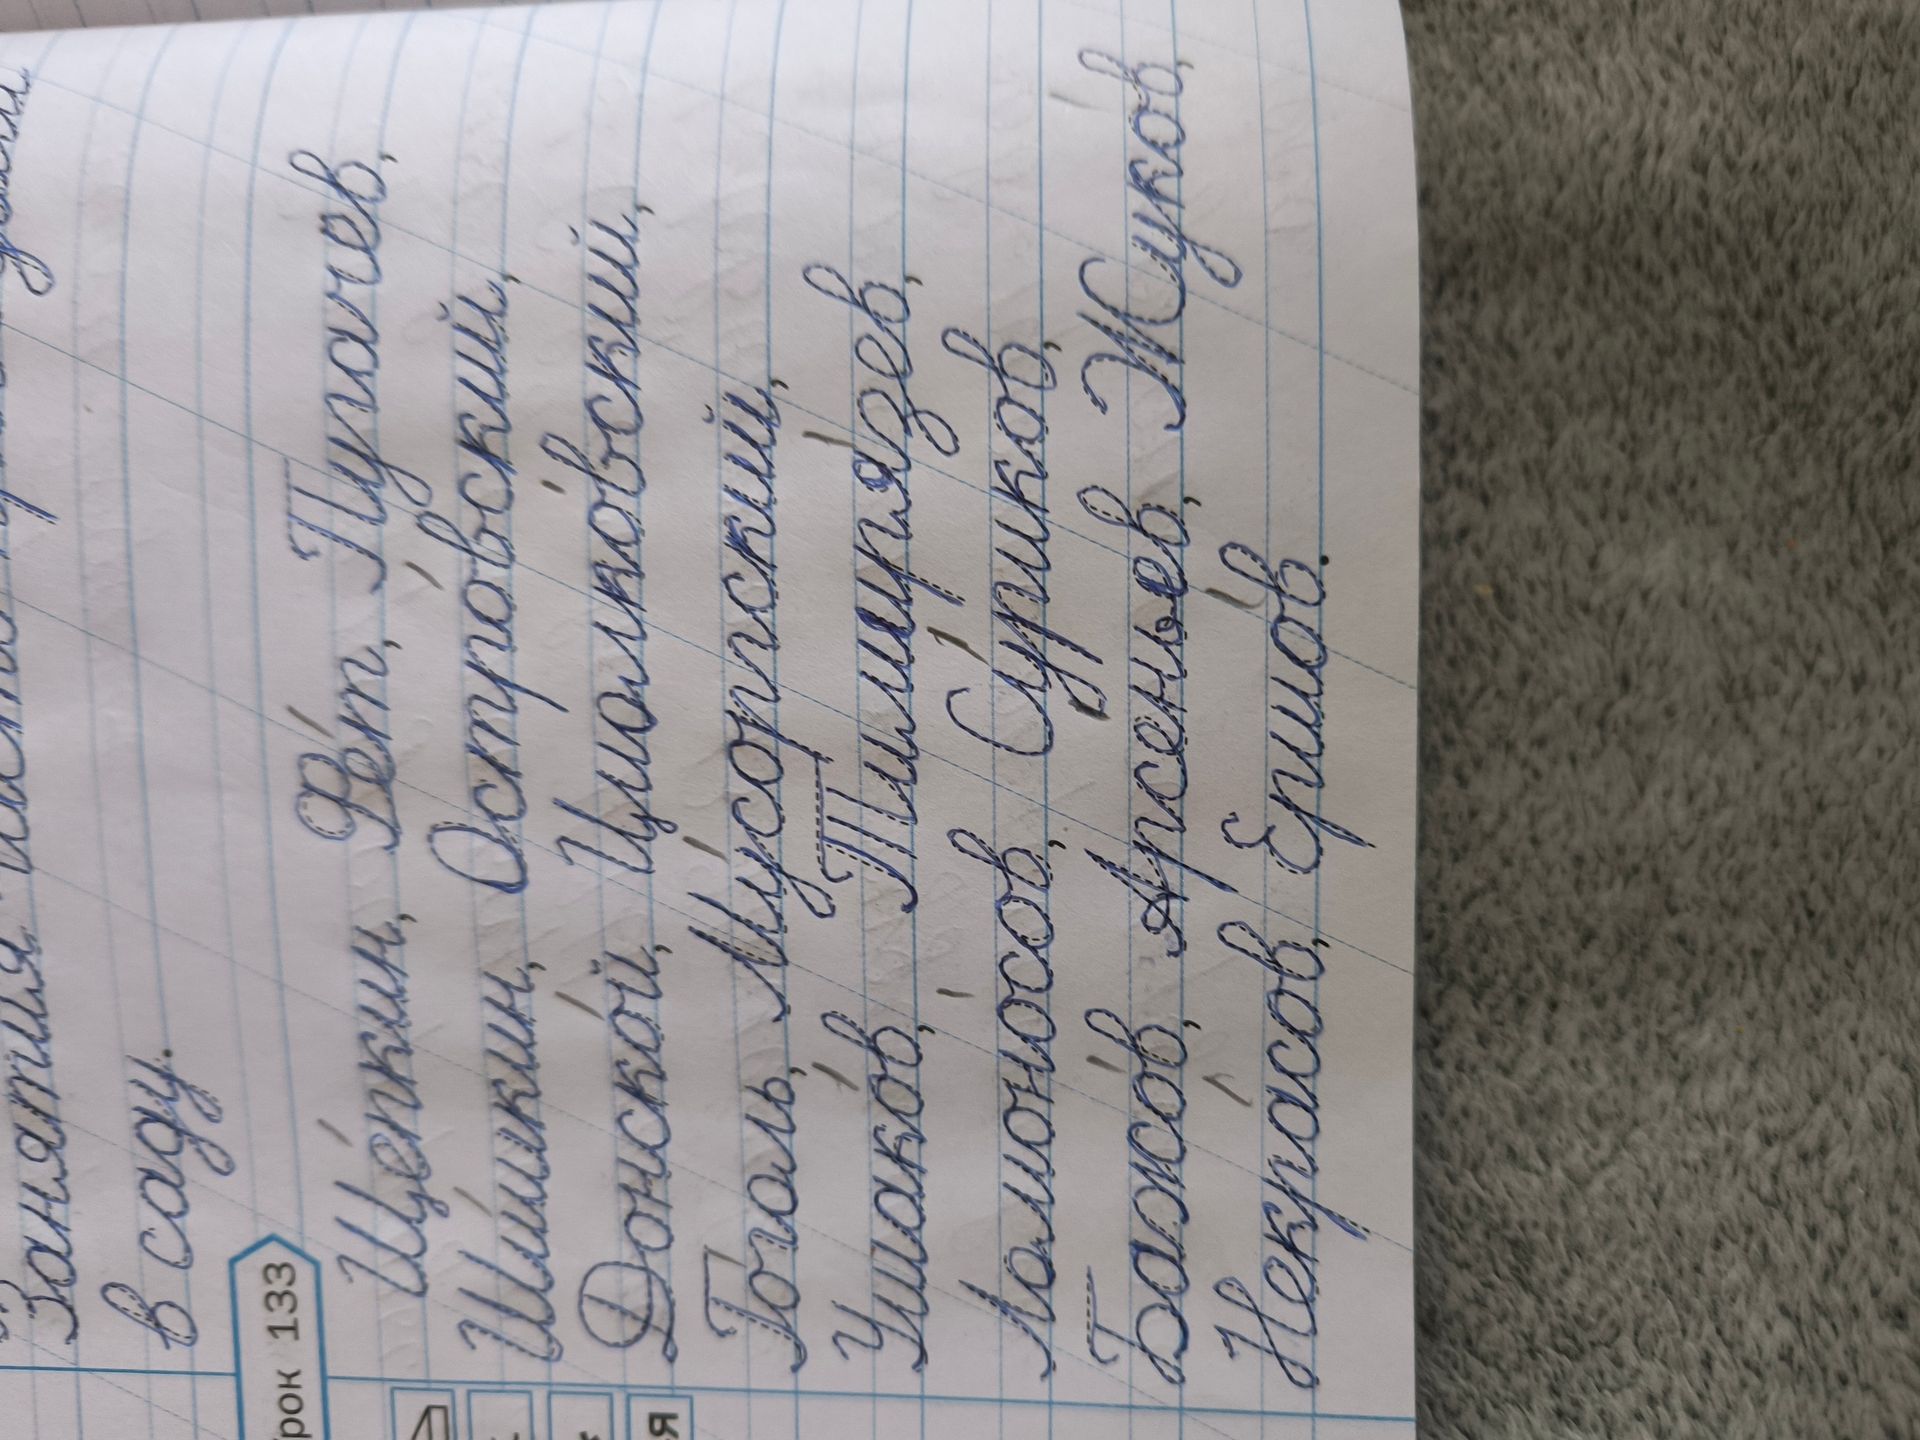 Занятия
в саду.
рок 133
Щепкин, Фет, Пугачев,
Шишкин, Островский,
Донской, Циолковский,
Гоголь, Мусоргский,
Ушаков, Тимирязев,
Ломоносов, Суриков,
Бажов, Арсеньев, Жуков,
Некрасов, Ермов.
я